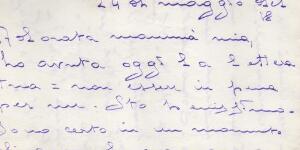 24 di maggio
18
Adorata mamma mia,
ho avuta oggi la lettera
tua = non esser in pena
per me. Sto benissimo.
Sono certo in un momento